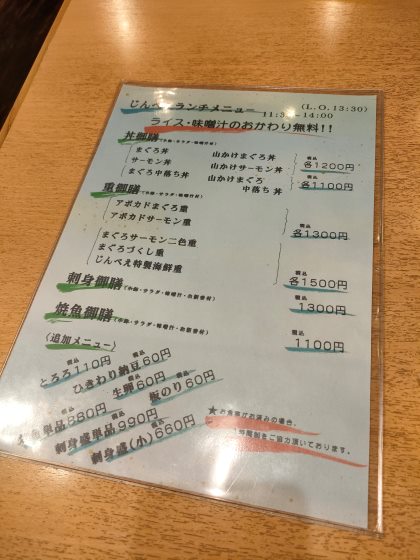 じんべえランチメニュー (L.O.13:30)
11:30-14:00
ライス・味噌汁のおかわり無料!!
丼御膳(小鉢・サラダ・味噌汁付)
まぐろ丼 山かけまぐろ丼
サーモン丼 山かけサーモン丼 税込 各1200円
まぐろ中落ち丼 山かけまぐろ中落ち丼 税込 各1100円
重御膳(小鉢・サラダ・味噌汁付)
アボカドまぐろ重
アボカドサーモン重 税込 各1300円
まぐろサーモン二色重
まぐろづくし重
じんべえ特製海鮮重 税込 各1500円
刺身御膳(小鉢・サラダ・味噌汁・お新香付) 税込 1300円
焼魚御膳(小鉢・サラダ・味噌汁・お新香付) 税込 1100円
〈追加メニュー〉
とろろ 税込 110円 ひきわり納豆 税込 60円
生卵 税込 60円 板のり 税込 60円
魚単品 税込 880円
刺身盛単品 税込 990円
刺身盛(小) 税込 660円
★お食事がお済みの場合、
時間制をご協力頂いております。